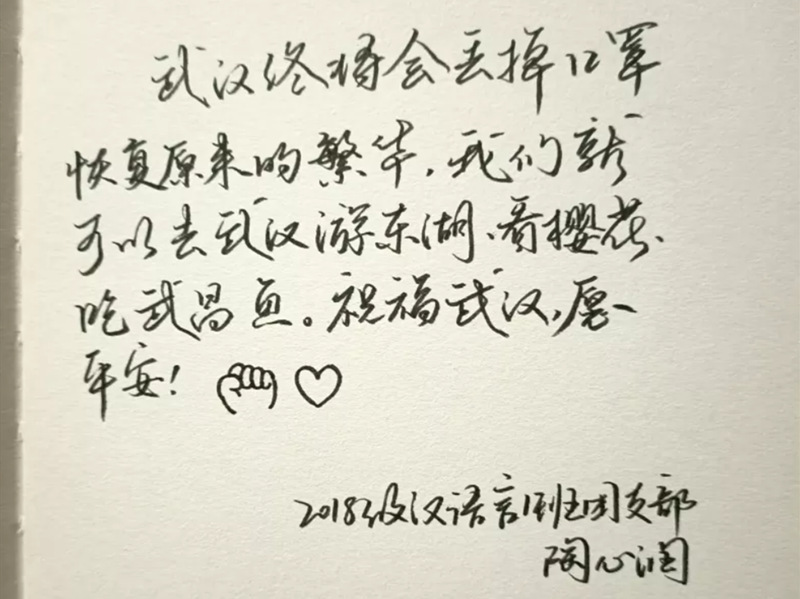 武汉终将会丢掉口罩
恢复原来的繁华，我们就
可以去武汉游东湖、看樱花、
吃武昌鱼。祝福武汉，愿
平安！
2018级汉语言1班团支部
陶心润